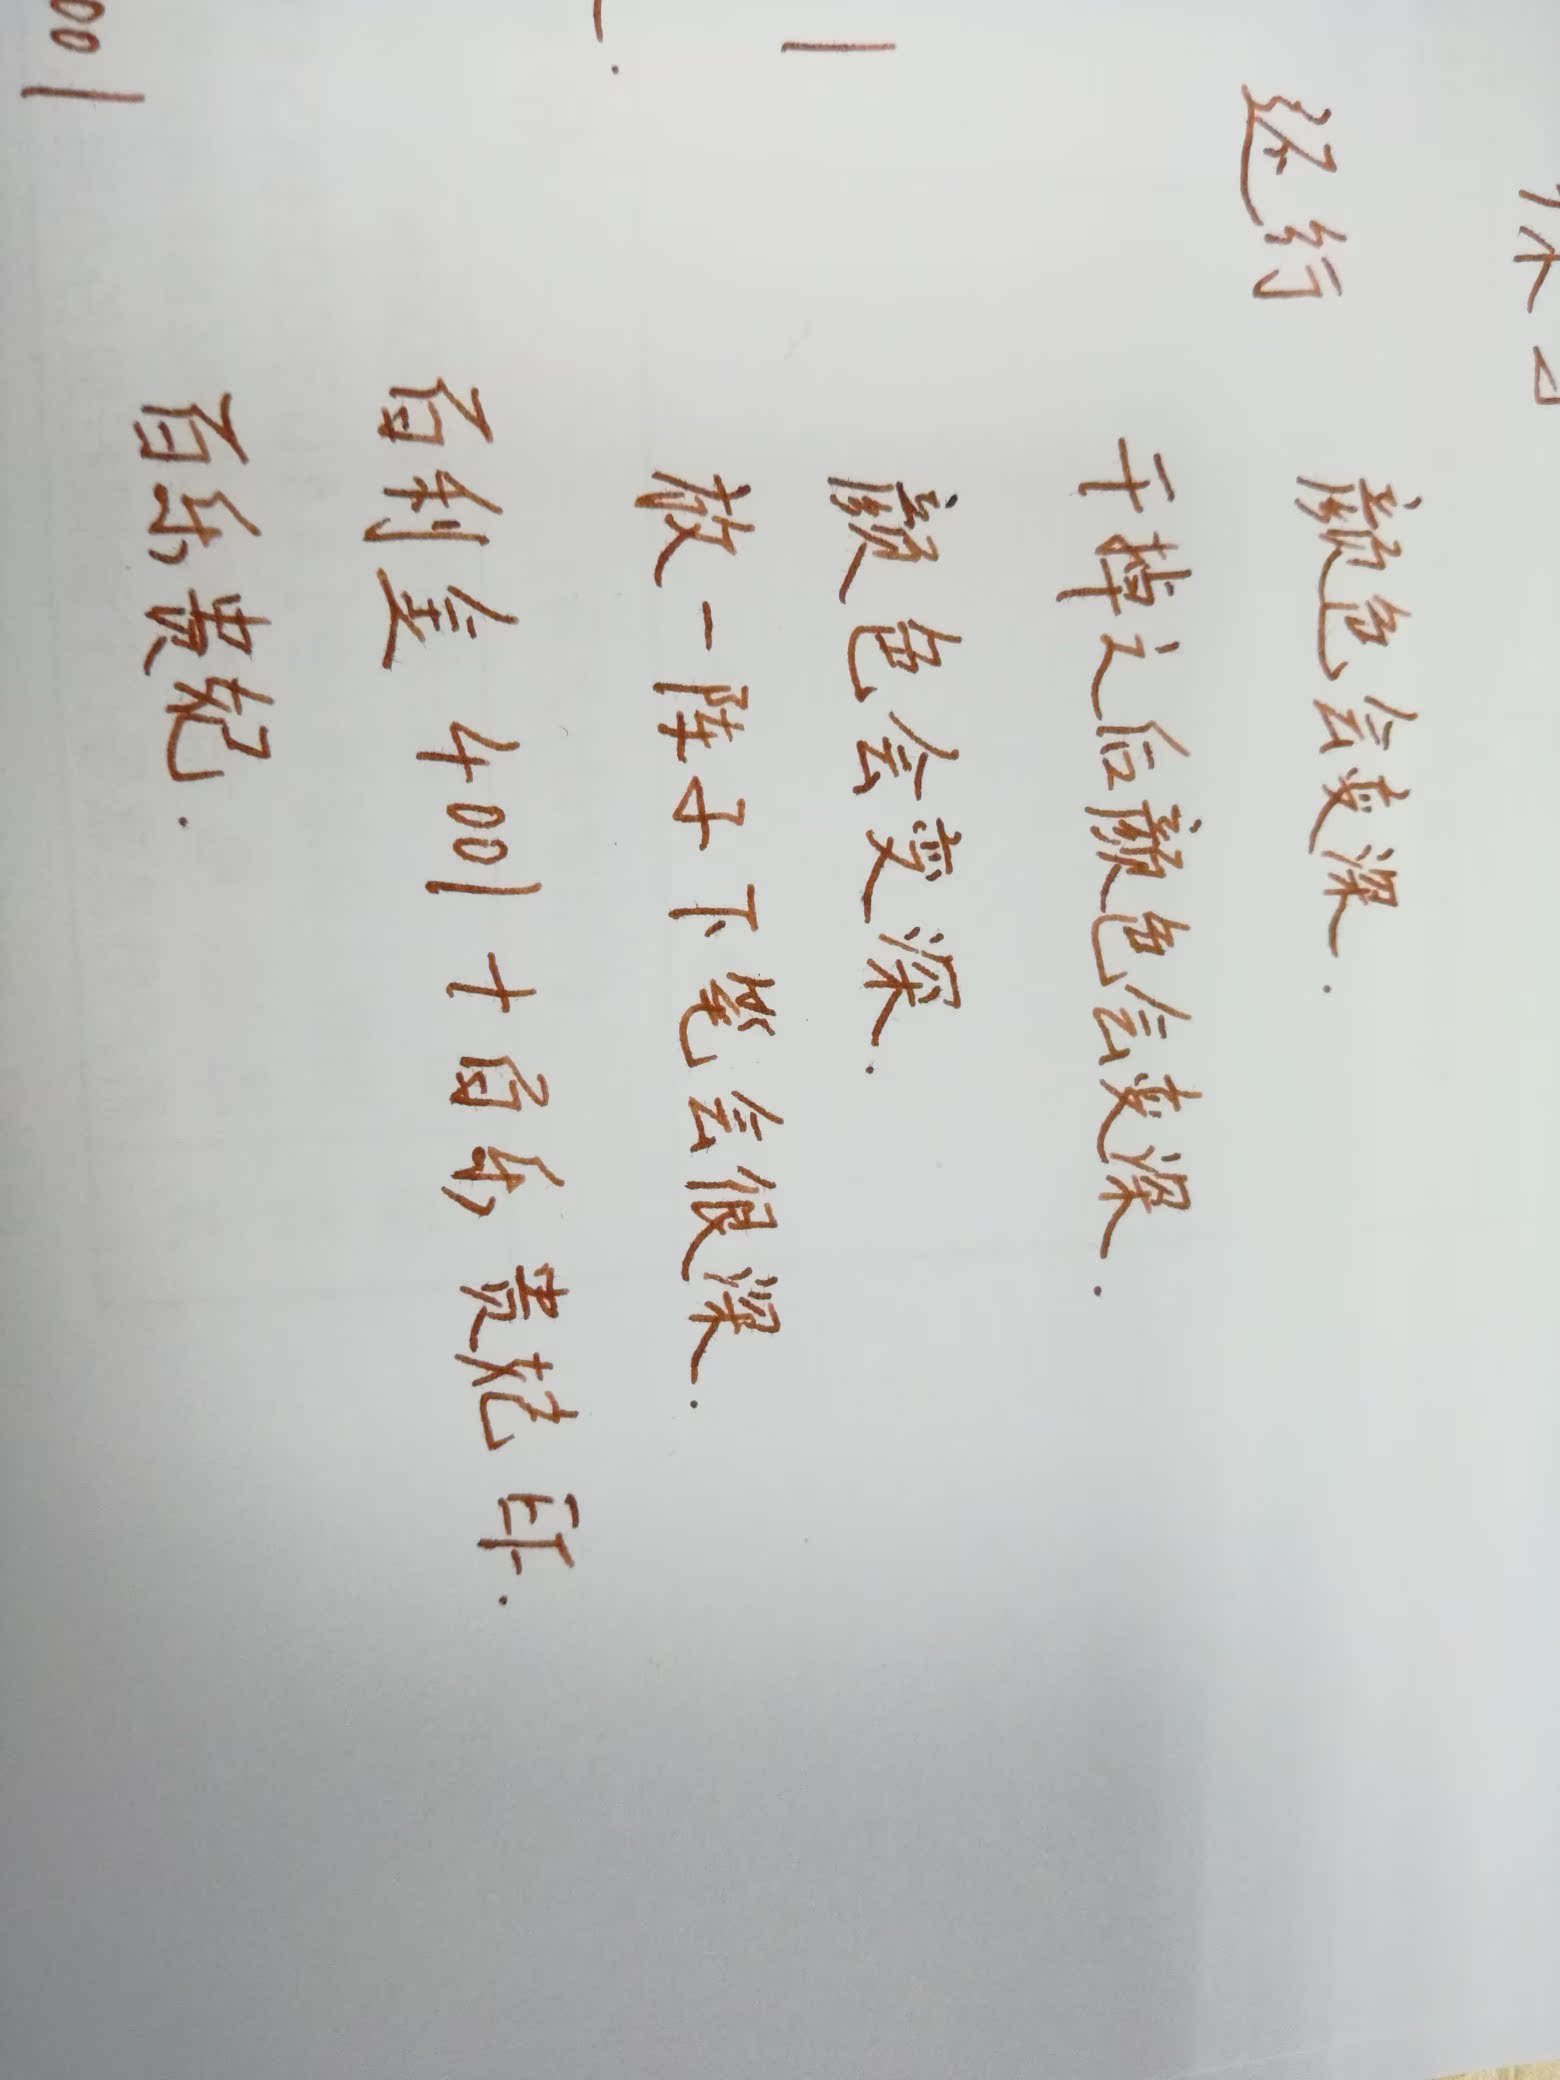 还行 颜色会变深.
干掉之后颜色会变深.
颜色会变深.
放一阵子下笔会很深.
百利金 4001 + 百乐 贵妃 印.
001 百乐贵妃.